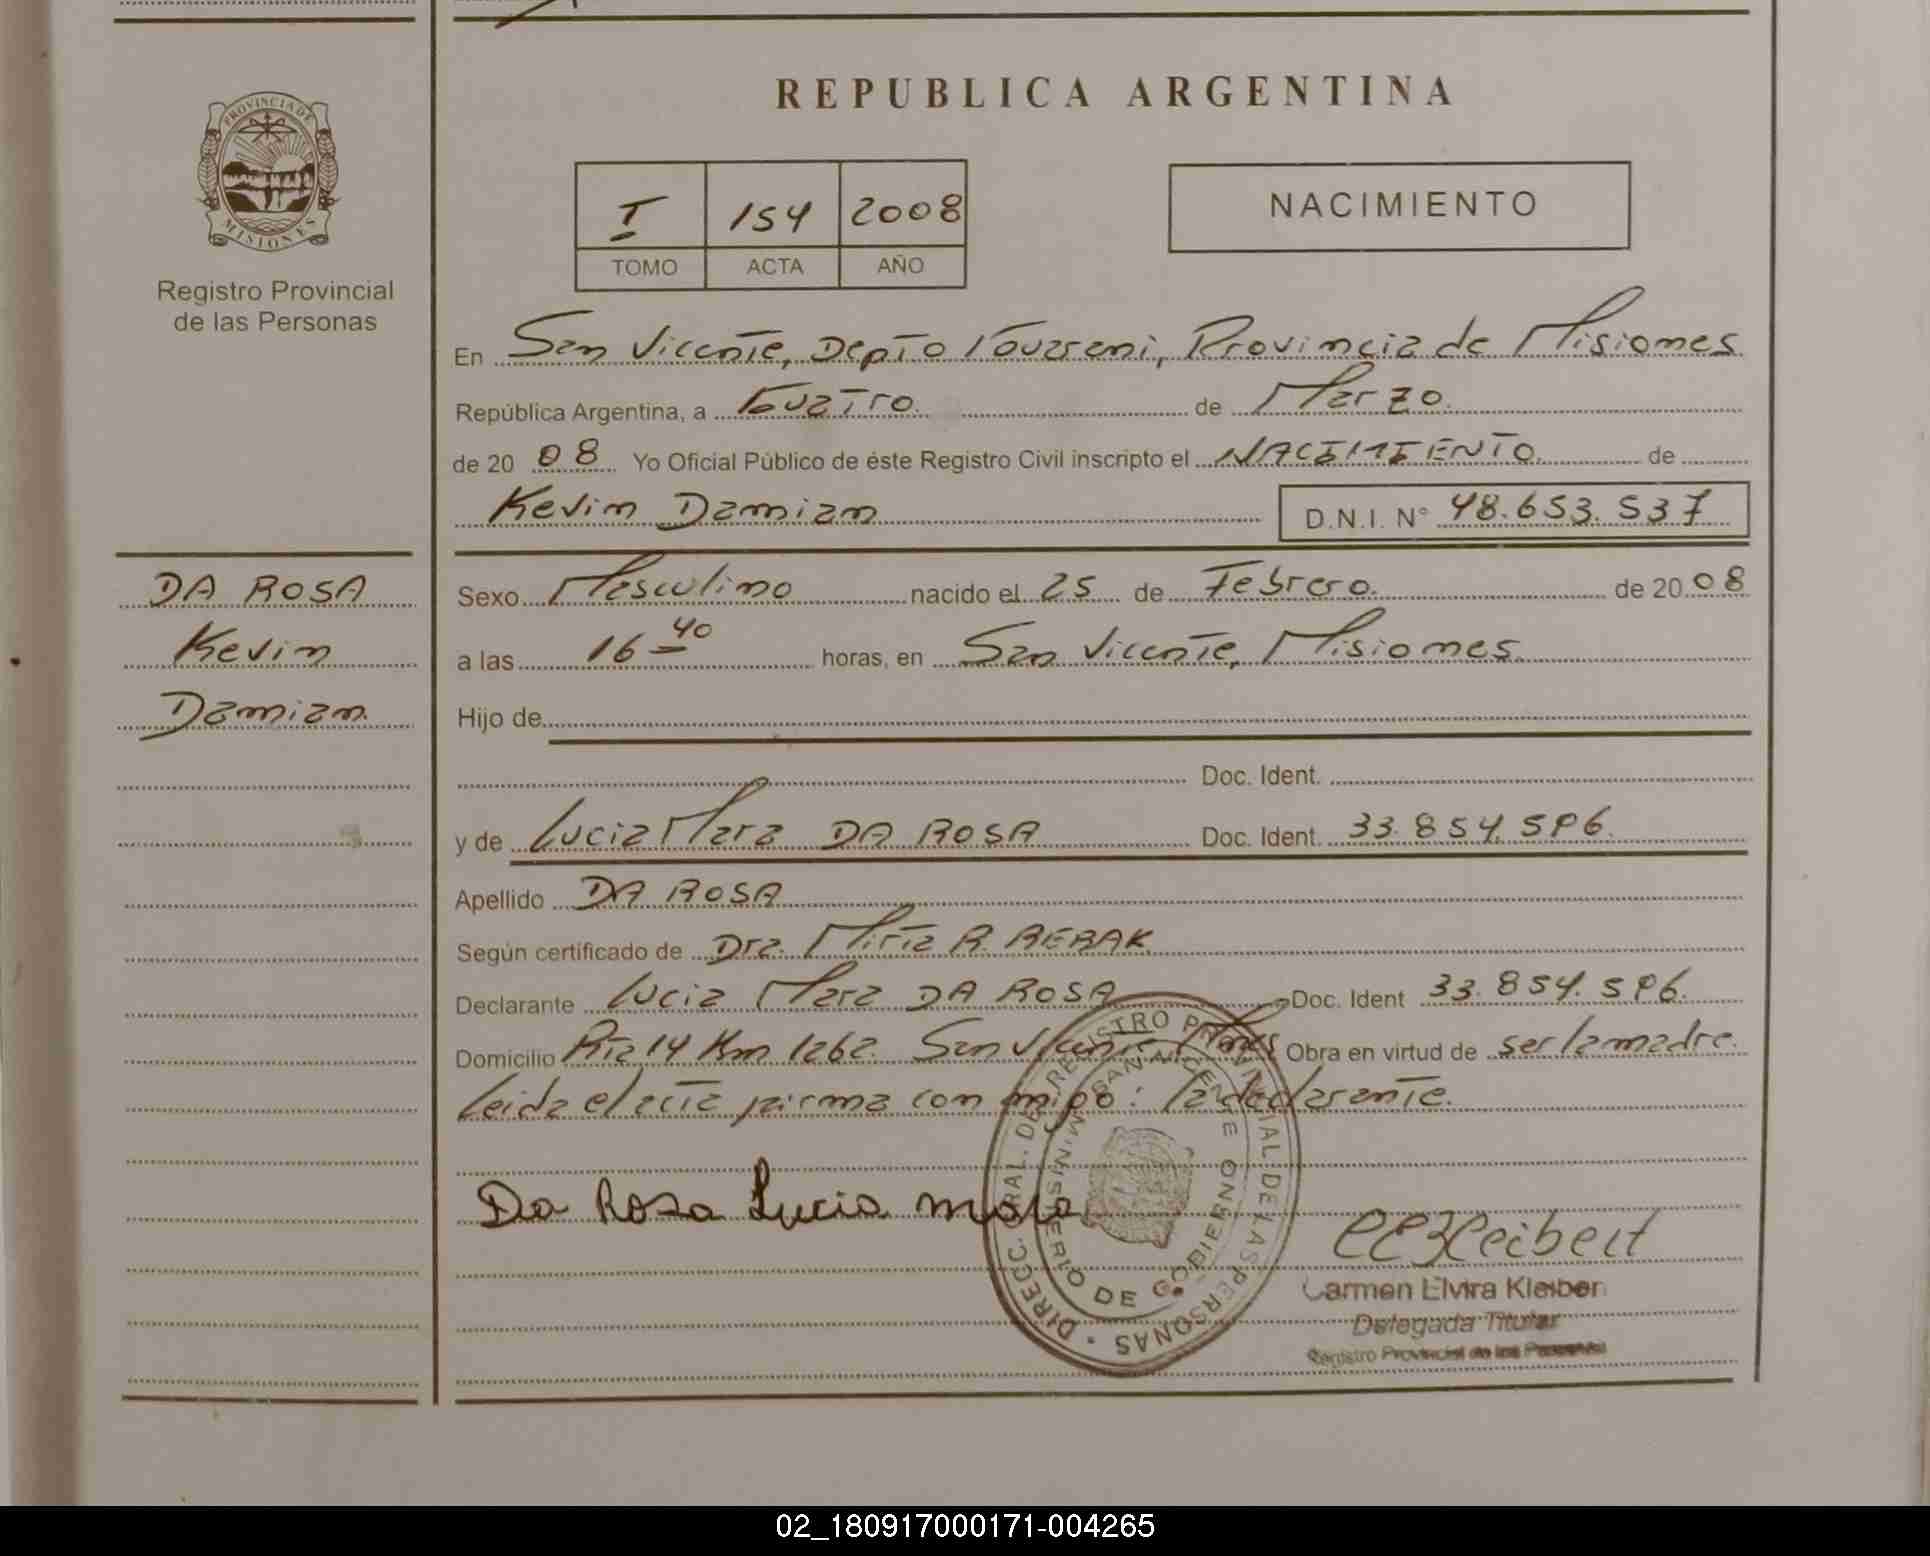 REPUBLICA ARGENTINA
PROVINCIA DE
MISIONES
Registro Provincial
de las Personas
I 154 2008
TOMO ACTA AÑO
NACIMIENTO
En San Vicente, Depto Guarani, Provincia de Misiones
República Argentina, a Cuatro de Marzo.
de 20 08 Yo Oficial Público de éste Registro Civil inscripto el NACIMIENTO de
Kevin Damian D.N.I. Nº 48.653.537
DA ROSA
Kevin
Damian
Sexo Masculino nacido el 25 de Febrero. de 20 08
a las 16 40 horas, en San Vicente, Misiones
Hijo de
Doc. Ident.
y de Lucia Mara DA ROSA Doc. Ident. 33.854.596.
Apellido DA ROSA
Según certificado de Dra. Mirta R. BERAK
Declarante Lucia Mara DA ROSA Doc. Ident 33.854.596.
Domicilio Rta 14 Km 1262. San Vicente Mnes Obra en virtud de ser la madre.
Leida el acta firma con migo: la declarante.
Da Rosa Lucia mara
DIRECC. GRAL. DEL REGISTRO PROVINCIAL DE LAS PERSONAS
MINISTERIO DE GOBIERNO
Carmen Elvira Kleibert
Delegada Titular
Registro Provincial de las Personas
02_180917000171-004265